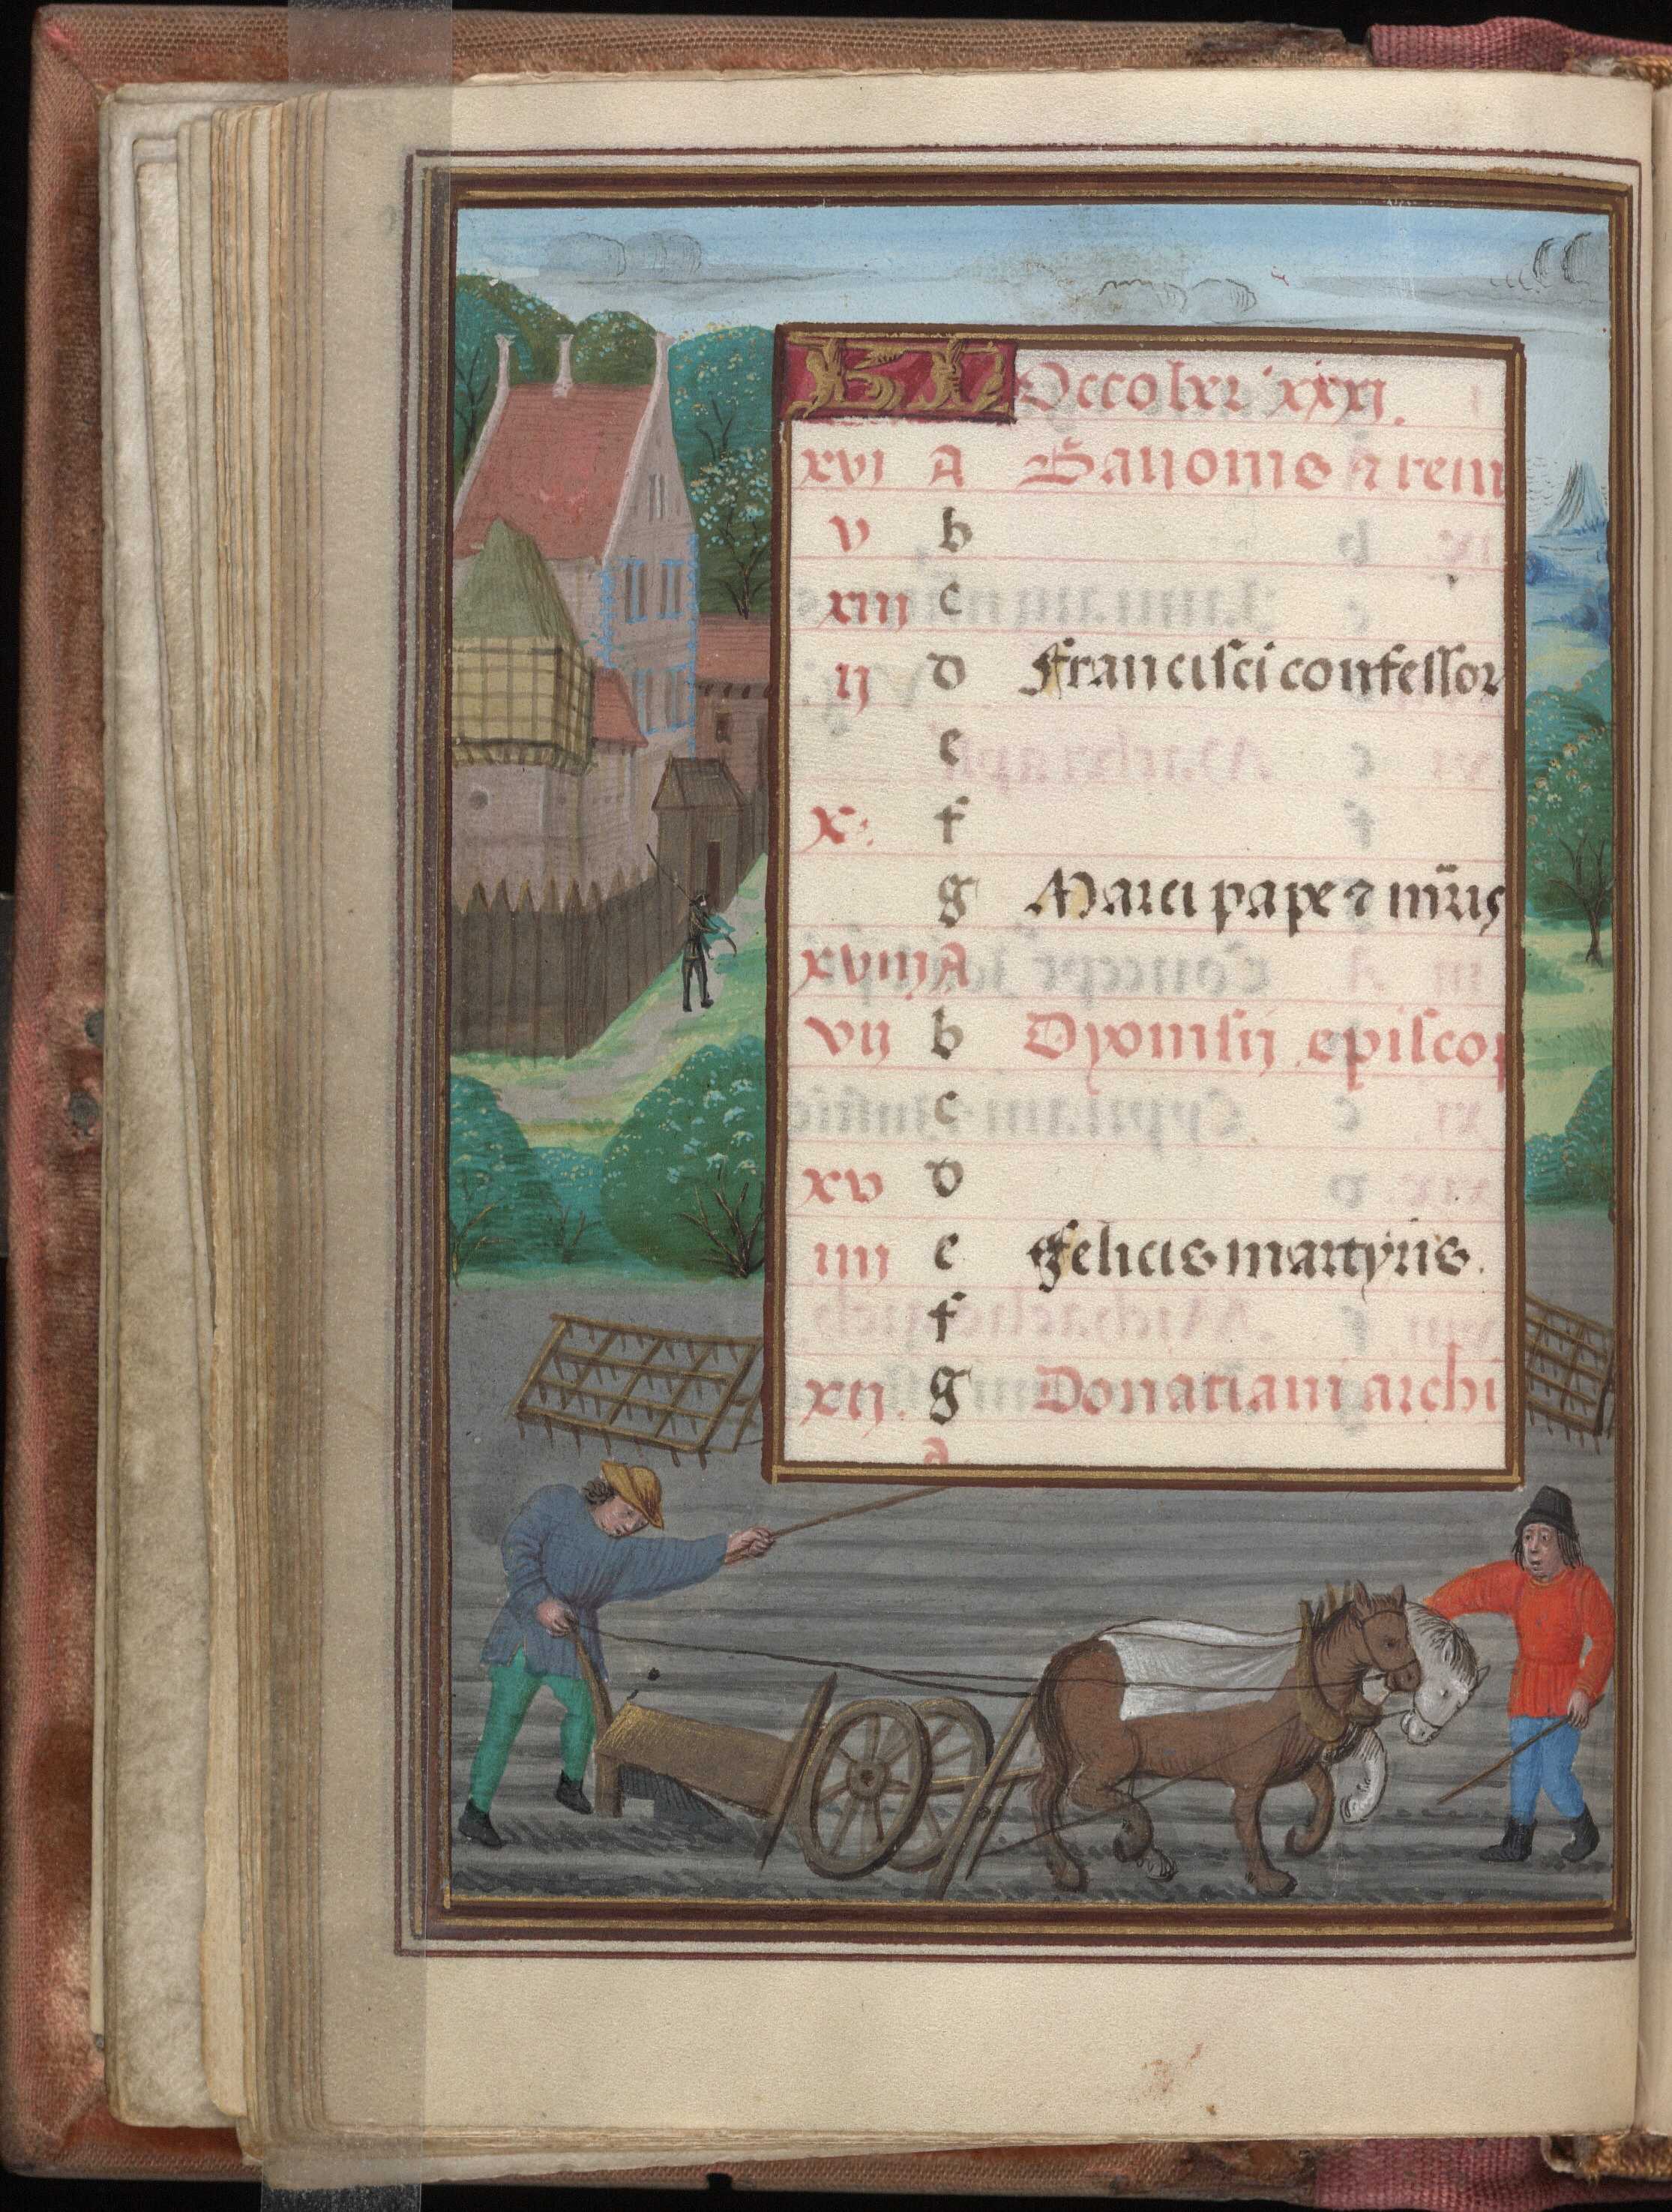 KL Occober xxxj.
xvj A Bauonis ⁊ rem
v b
xiij c
ij d Francisci confessor
e
x. f
g Marci pape ⁊ mr̄is
xviij A
vij b Dyonisij episcop
c
xv d
iiij e Felicis martyris.
f
xij. g Donatiani archi
a